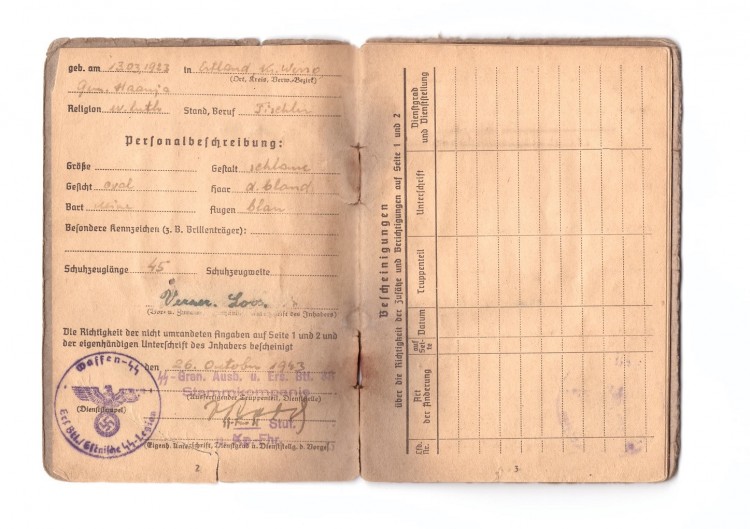 geb. am 13.03.1923 in Estland Kr. Werro
(Ort, Kreis, Verw.-Bezirk)
Gem. Haanja
Religion ev. luth. Stand, Beruf Tischler
Personalbeschreibung:
Größe Gestalt schlank
Gesicht oval Haar d. blond
Bart keine Augen blau
Besondere Kennzeichen (z. B. Brillenträger):
Schuhzeuglänge 45 Schuhzeugweite
Verner. Loos
(Vor- u. Zuname, eigenhändige Unterschrift des Inhabers)
Die Richtigkeit der nicht umrandeten Angaben auf Seite 1 und 2 und
der eigenhändigen Unterschrift des Inhabers bescheinigt
den 26. Oktober 1943
SS-Gren. Ausb. u. Ers. Btl.
Stammkompanie
(Ausfertigender Truppenteil, Dienststelle)
Waffen-SS
(Dienststempel)
Ers. Btl./Estnische SS-Legion
Stuf.
Kp.-Fhr.
(Eigenh. Unterschrift, Dienstgrad u. Dienststellg. d. Vorges.)
2
Bescheinigungen
über die Richtigkeit der Zusätze und Berichtigungen auf Seite 1 und 2
Lfd. Nr.
Art der Änderung
auf Seite
Datum
Truppenteil
Unterschrift
Dienstgrad und Dienststellung
3